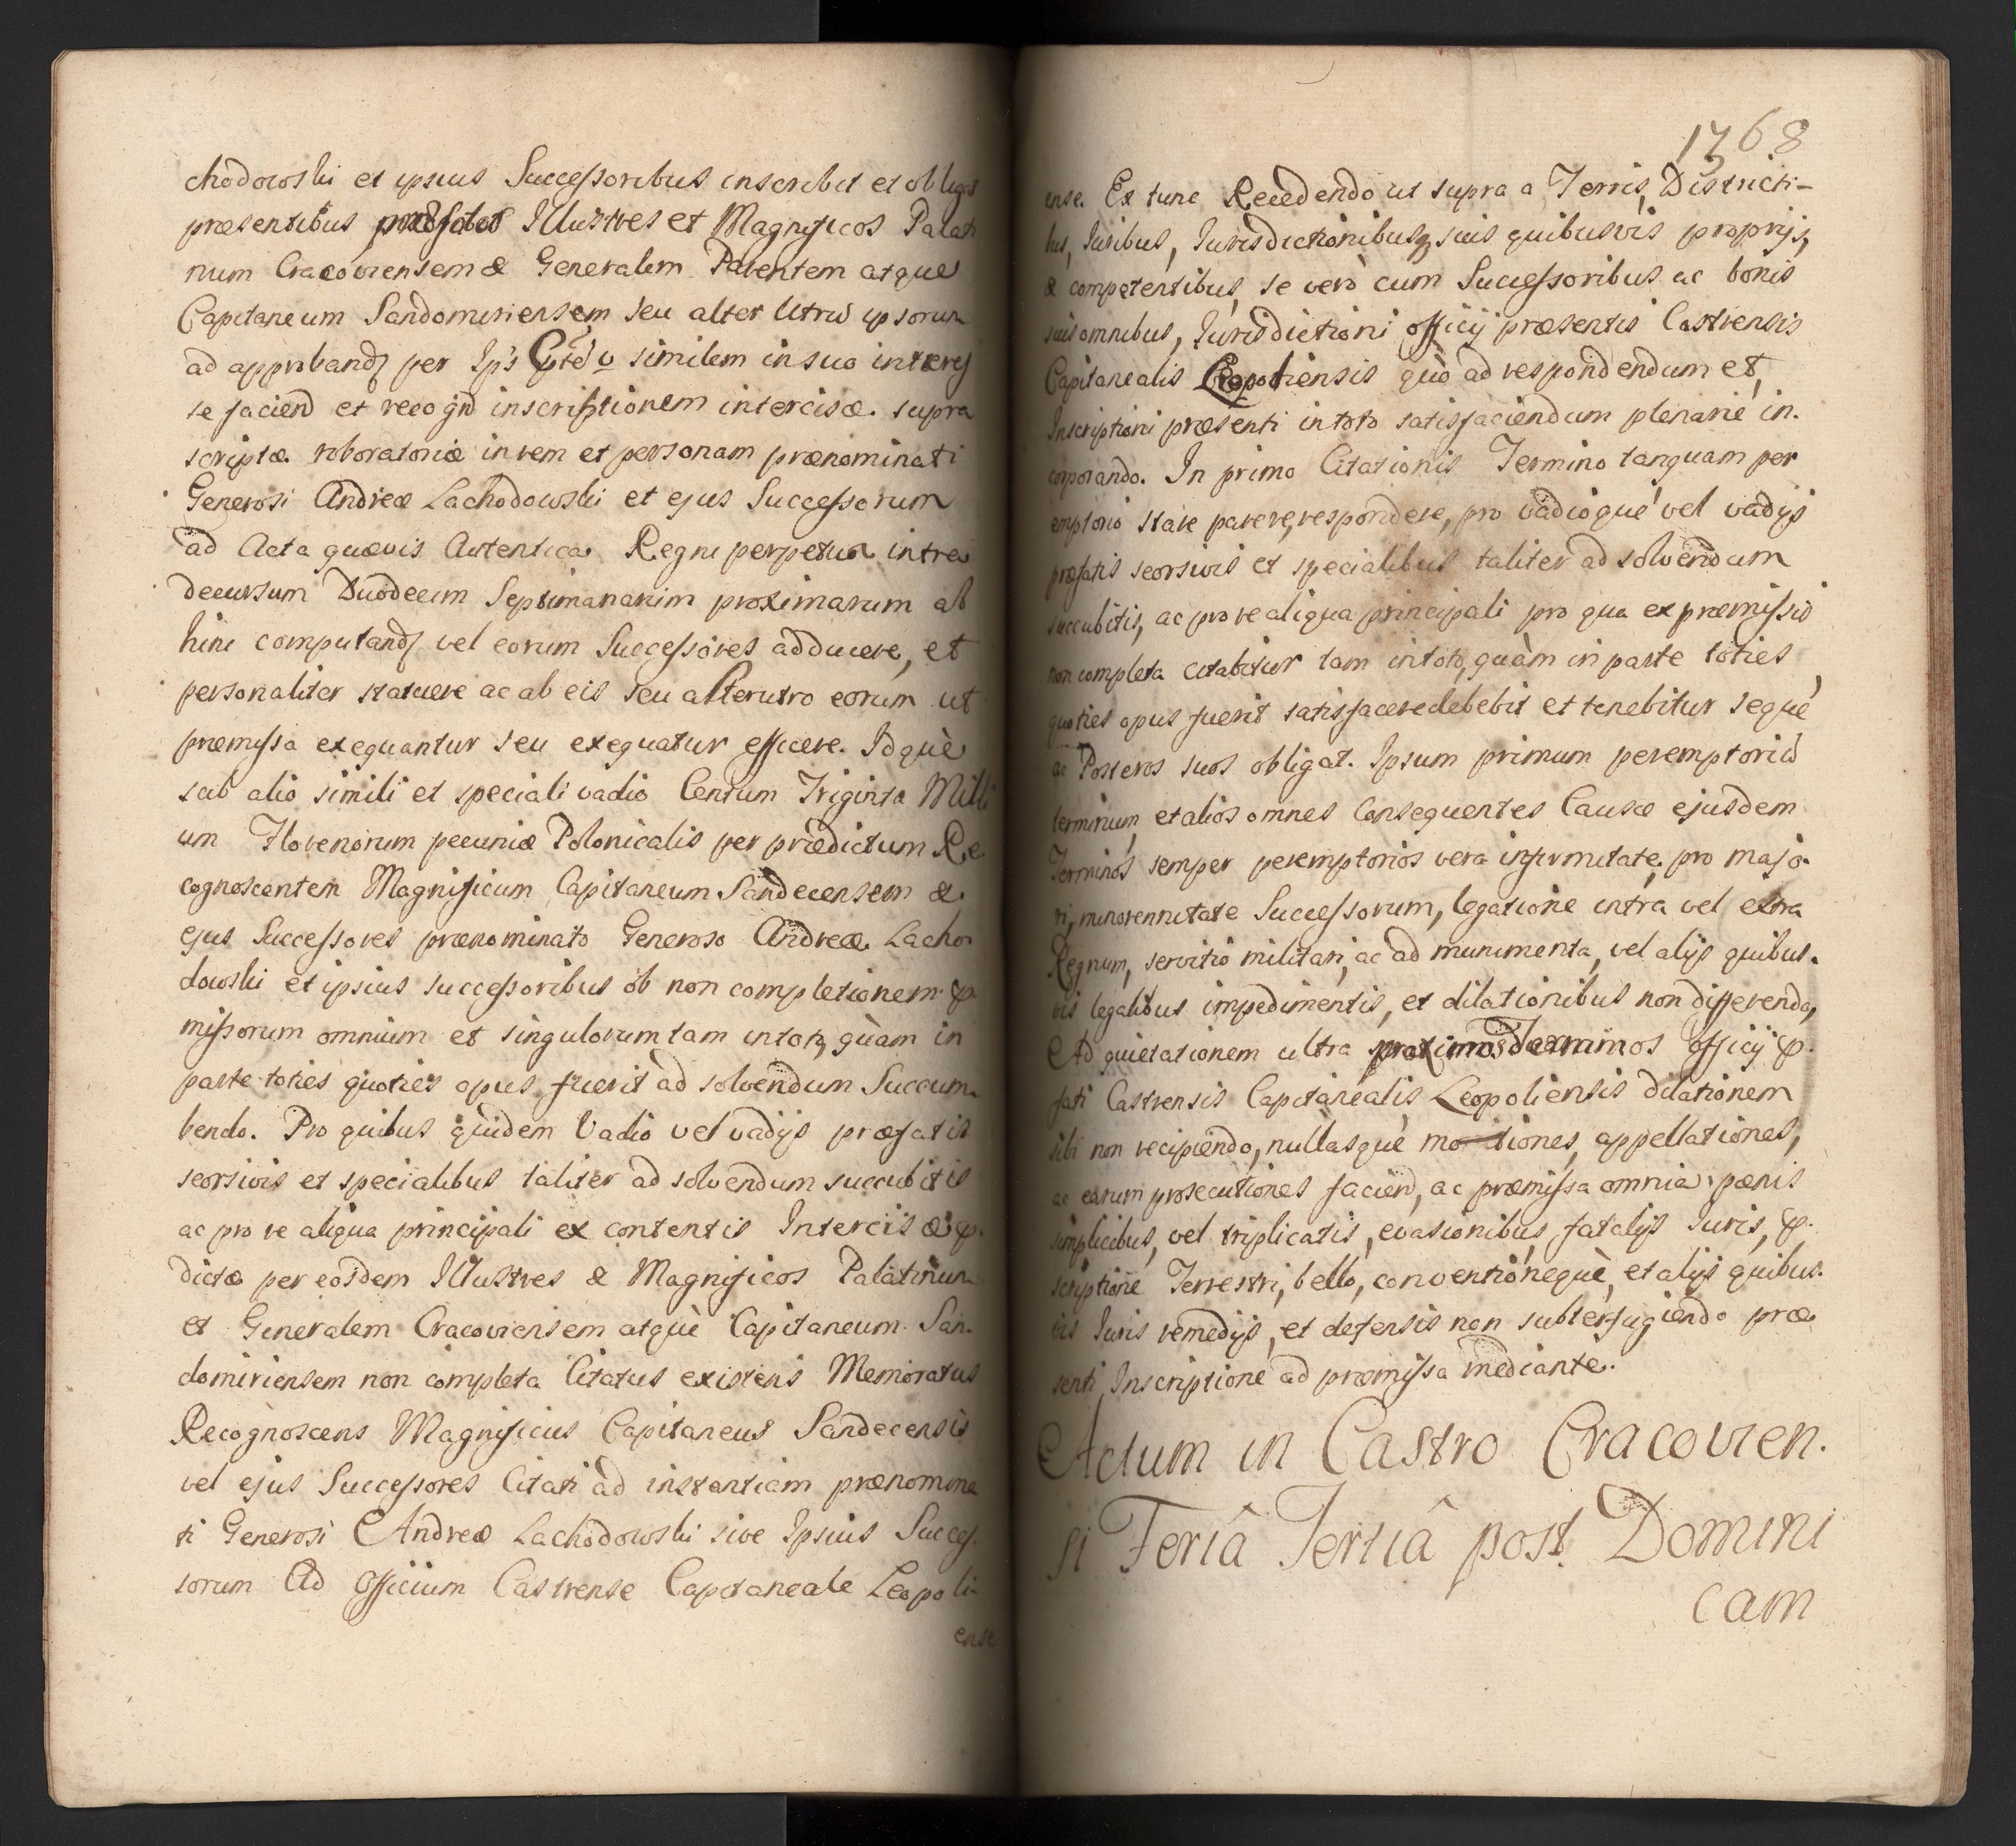 chodowski et ipsius Successoribus inscribit et obligat
præsentibus præfatos Illustres et Magnificos Palati
num Cracoviensem & Generalem Parentem atque
Capitaneum Sandomiriensem seu alter Utrũ ipsorum
ad approband per Ips similem in suo interes
se faciend et recognd inscriptionem intercisæ supra
scriptæ roboratoriæ in rem et personam prænominati
Generosi Andreæ Lachodowski et ejus Successorum
ad Acta quævis Autentica Regni perpetua intra
decursum Duodecim Septimanarum proximarum ab
hinc computand vel eorum Successores adducere, et
personaliter statuere ac ab eis seu alterutro eorum ut
præmissa exequantur seu exequatur efficere. Idquè
sub alio simili et speciali vadio Centum Triginta Milli
um Florenorum pecuniæ Polonicalis per prædictum Re
cognoscentem Magnificum Capitaneum Sandecensem &
ejus Successores prænominato Generoso Andreæ Lacho
dowski et ipsius successoribus ob non completionem p
missorum omnium et singulorum tam in toto, quàm in
parte toties quoties opus fuerit ad solvendum Succum
bendo. Pro quibus quidem Vadio vel vadijs præfatis
seorsivis et specialibus taliter ad solvendum succubitis
ac pro re aliqua principali ex contentis Intercisæ p
dictæ per eosdem Illustres & Magnificos Palatinum
et Generalem Cracoviensem atquè Capitaneum San.
domiriensem non completa Citatus existens Memoratus
Recognoscens Magnificus Capitaneus Sandecensis
vel ejus Successores Citati ad instantiam prænomina
ti Generosi Andreæ Lachodowski sive Ipsius Succes.
sorum Ad Officium Castrense Capitaneale Leopoli-
ense
1368
ense. Ex tunc Recedendo ut supra a Terris, Districti-
bus, Iuribus, Iurisdictionibusq suis quibusvis proprijs,
& competentibus, se verò cum Successoribus ac bonis
suis omnibus, Iurisdictioni officij præsentis Castrensis
Capitanealis Leopoliensis quò ad respondendum et,
Inscriptioni præsenti in toto satisfaciendum plenariè in.
corporando. In primo Citationis Termino tanquam per
emptorio stare parere, respondere, pro vadioquè vel vadijs
præfatis seorsivis et specialibus taliter ad solvendum
succubitis, ac pro re aliqua principali pro qua ex præmissis
non completa citabitur tam in toto, quàm in parte toties
quoties opus fuerit satisfacere debebit et tenebitur sequè
ac Posteros suos obligat. Ipsum primum peremptoriũ
terminum, et alios omnes Consequentes Causæ ejusdem
Terminos semper peremptorios vera infirmitate, pro majo
ri, minorennitate Successorum, legatione intra vel extra
Regnum, servitio militari, ac ad munimenta, vel alijs quibus.
vis legalibus impedimentis, et dilationibus non differendo,
Ad quietationem ultra proximos Terminos officij p.
fati Castrensis Capitanealis Leopoliensis dilationem
sibi non recipiendo, nullasquè motiones, appellationes,
ac earum prosecutiones faciend, ac præmissa omnia pænis
simplicibus, vel triplicatis, evasionibus, fatalijs Iuris, p.
scriptione Terrestri, bello, conventionequè, et alijs quibus.
vis Iuris remedijs, et defensis non subterfugiendo præ
senti Inscriptione ad præmissa mediante.
Actum in Castro Cracovien.
si Feriâ Tertiâ post Domini
cam